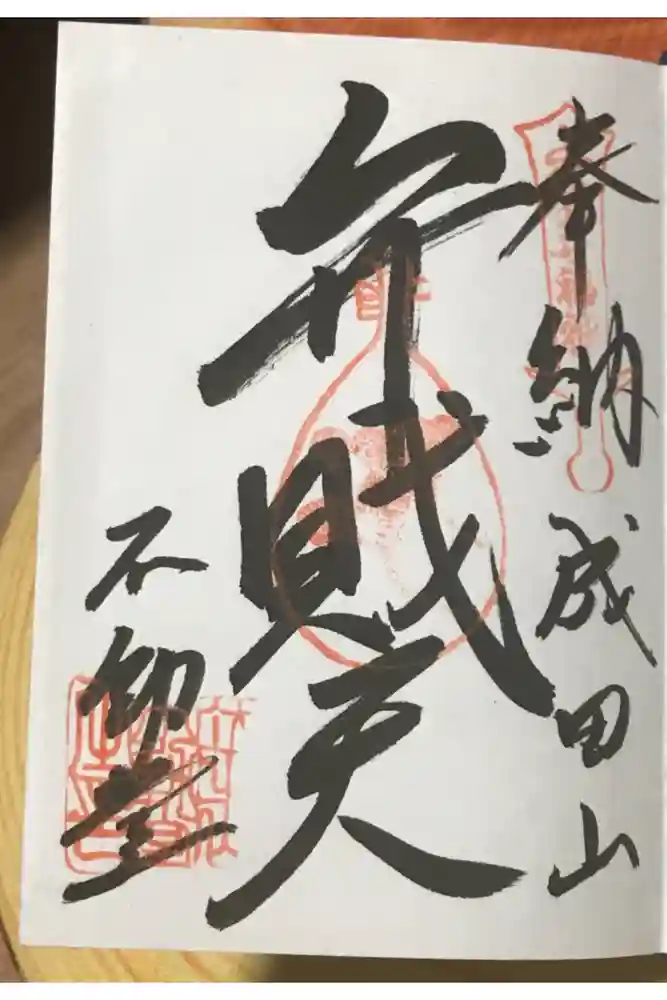 奉納 成田山
弁財天
不動堂